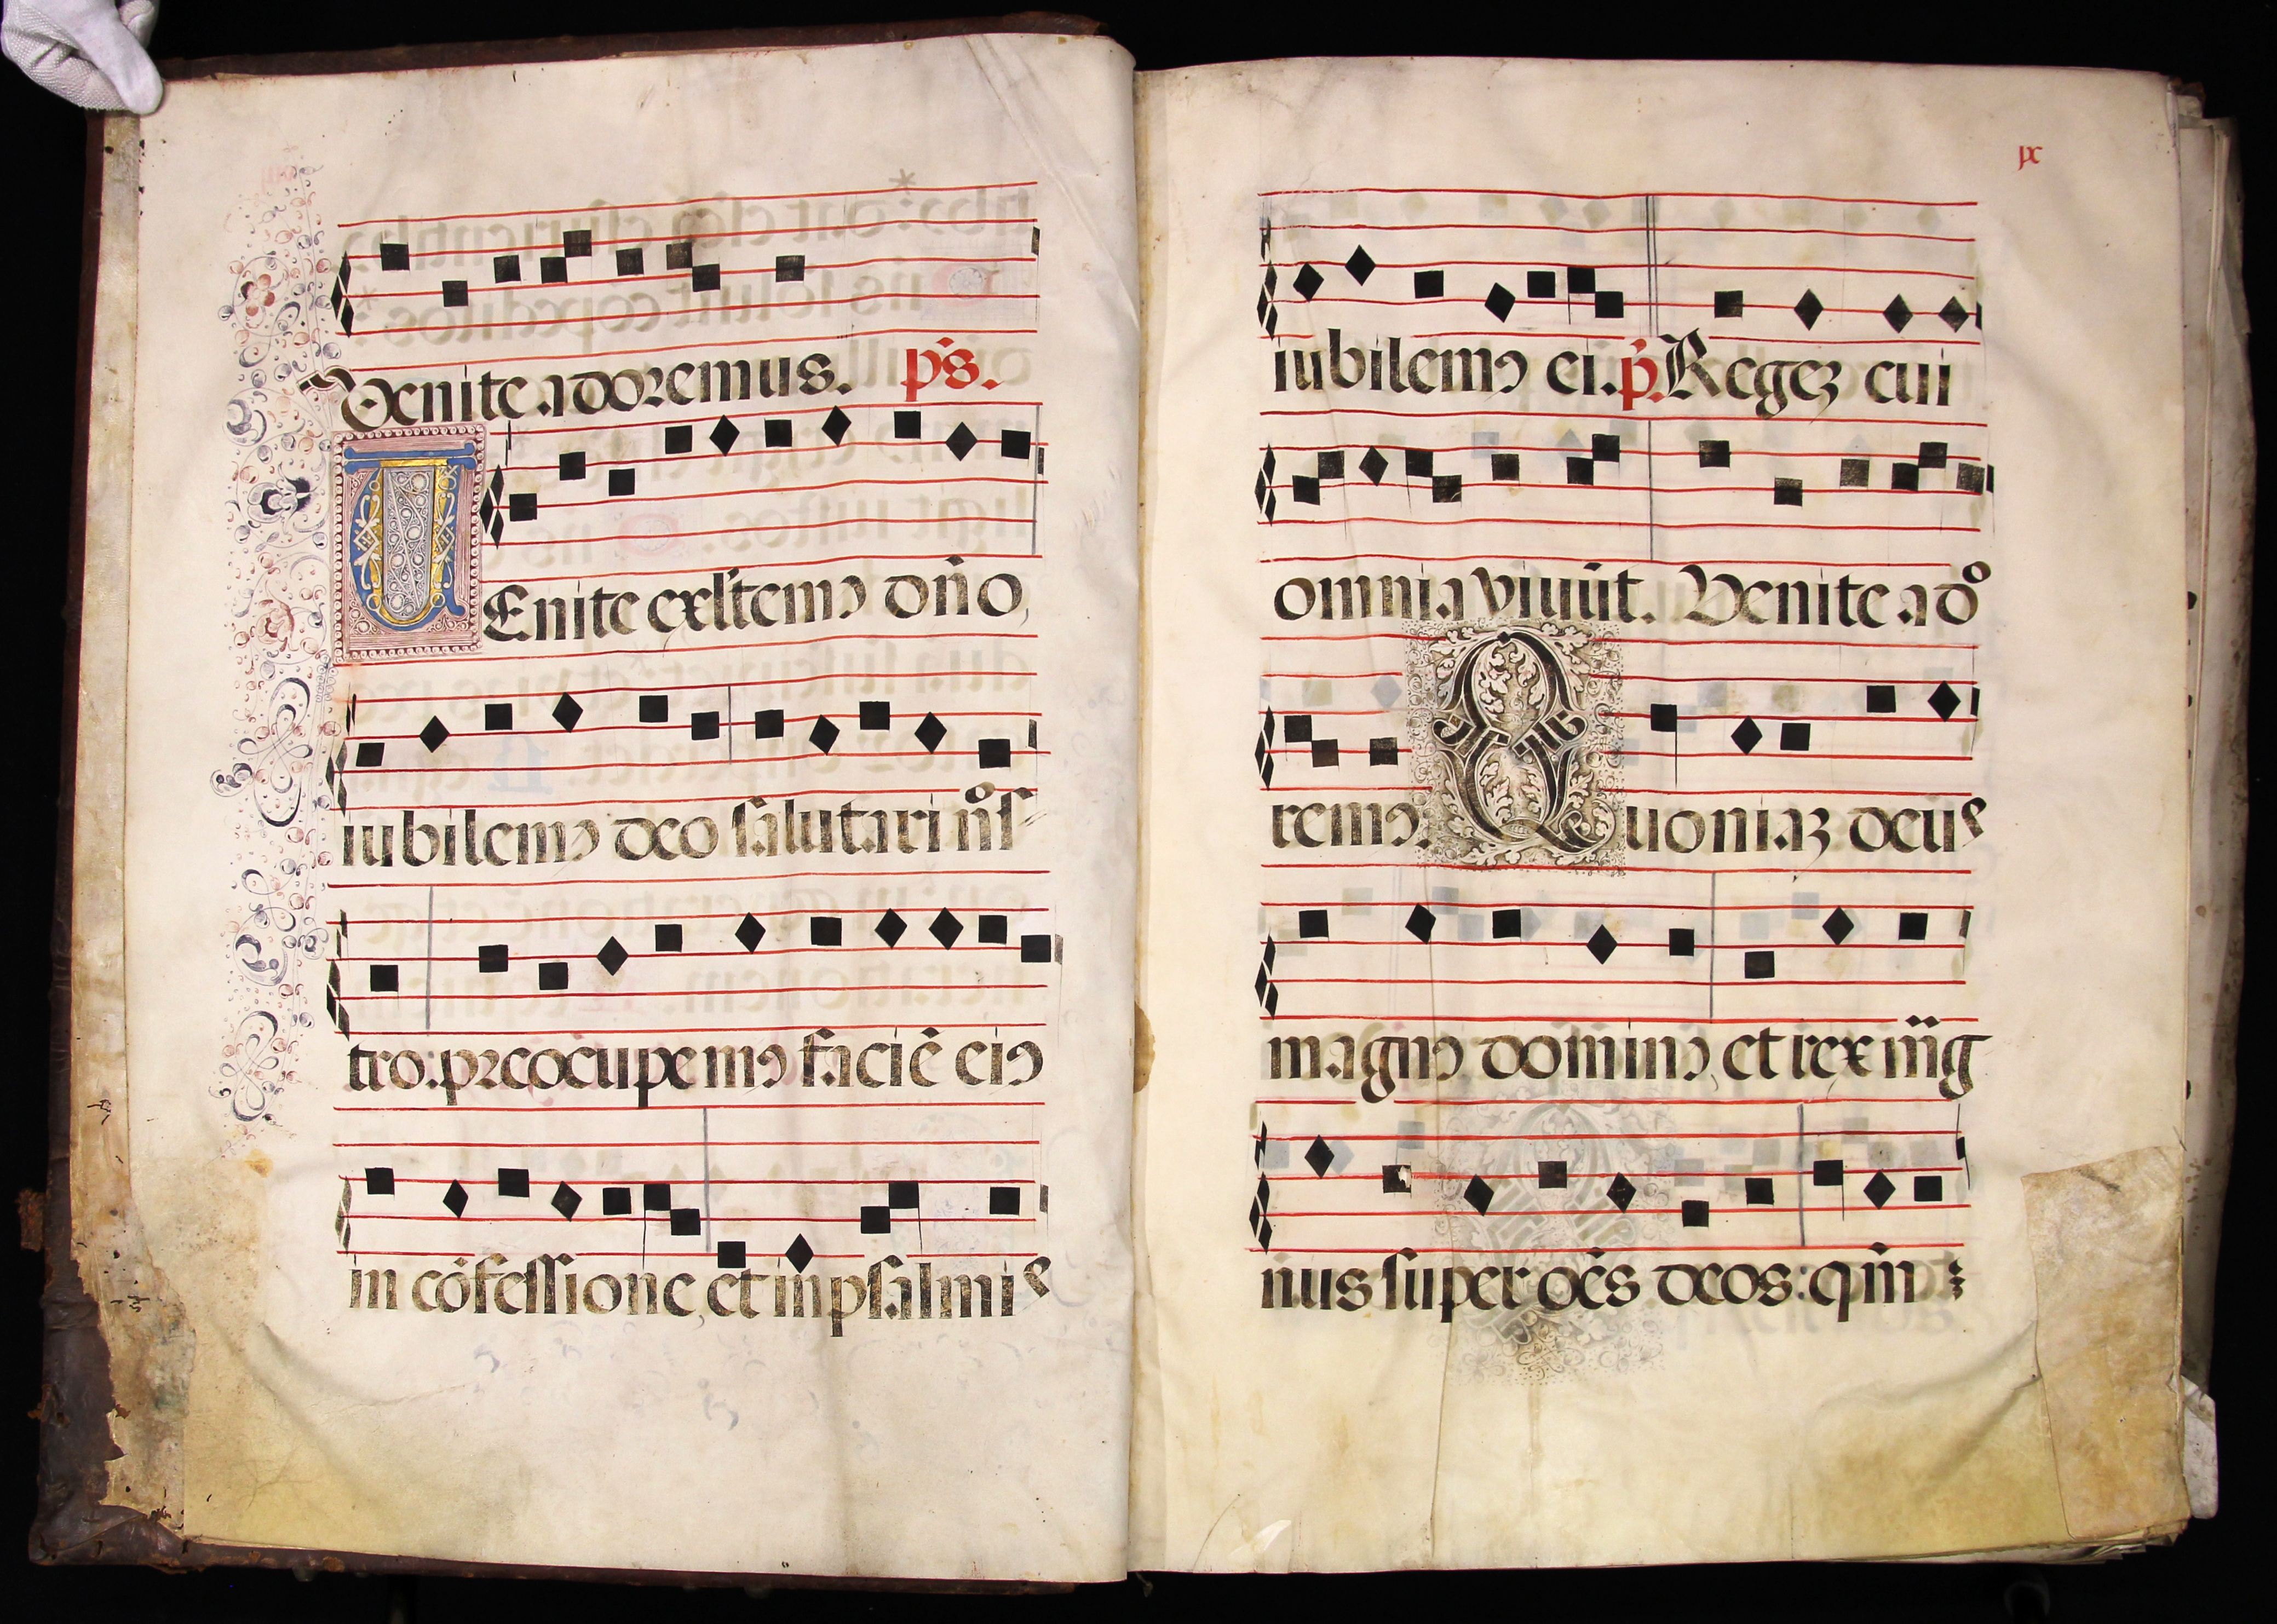 Venite adoremus. ps.
VEnite exltemꝰ dño,
iubilemꝰ deo salutari nṙs
tro: preocupemꝰ faciē eiꝰ
in cōfessione, et in psalmis
ix
iubilemꝰ ei. p̄. Regeʒ cui
omnia viuūt. Venite ado
remꝰ. Quoniaʒ deus
magnꝰ dominꝰ, et rex mg̃
nus super oēs deos: qm̄